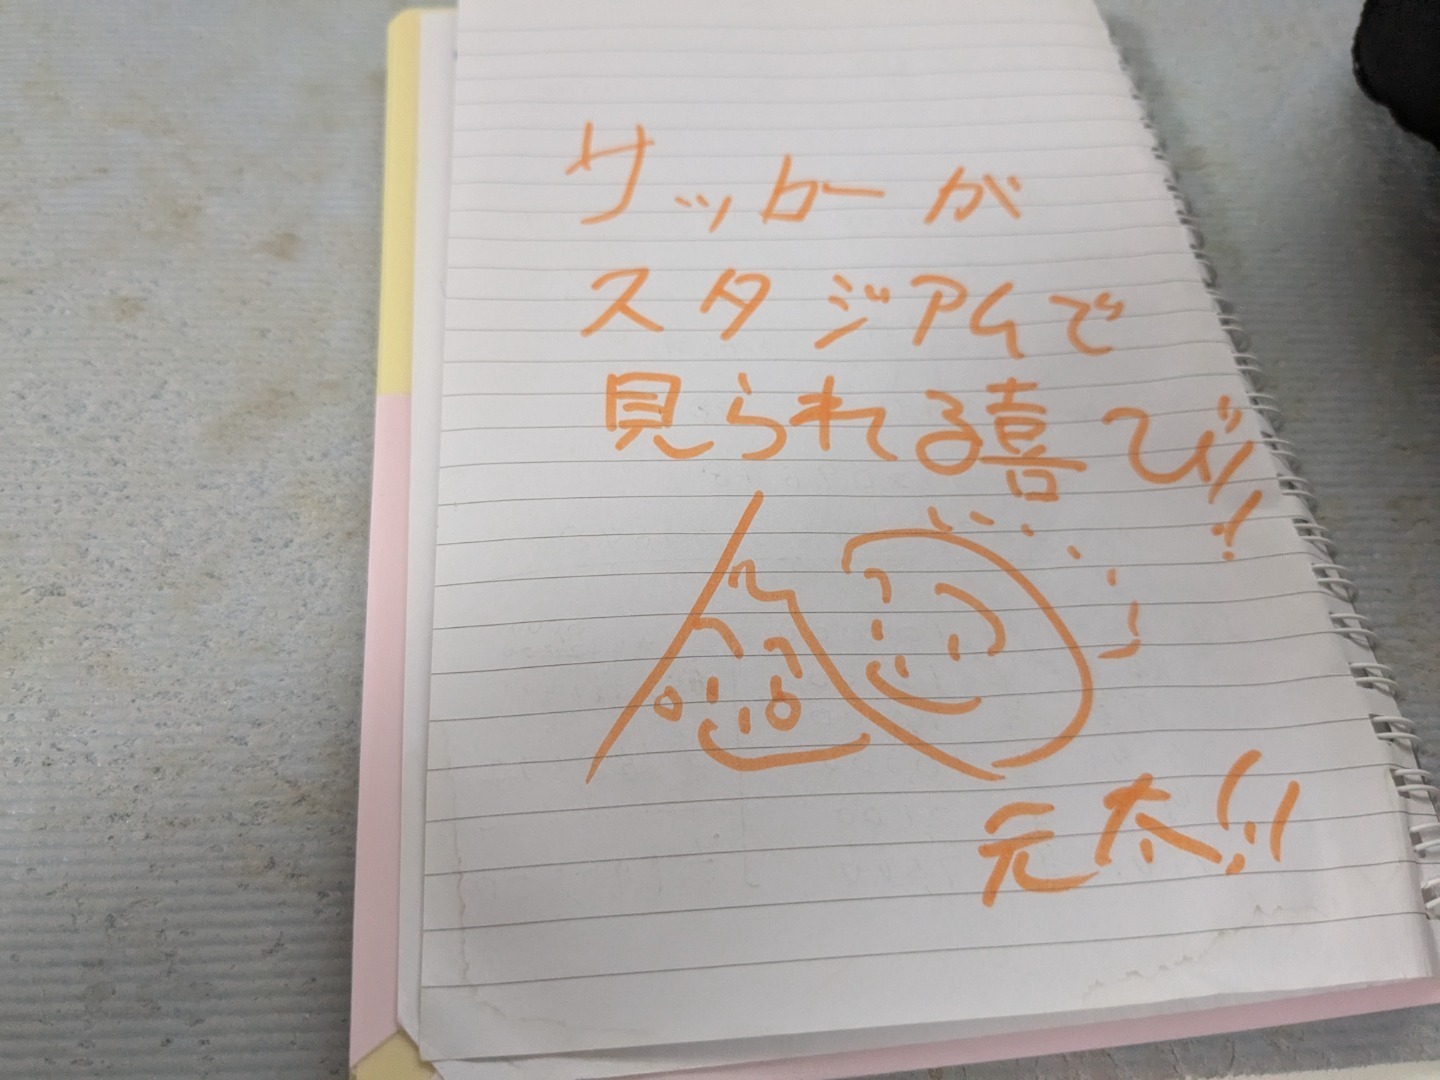 サッカーが
スタジアムで
見られる喜び!!
元太!!